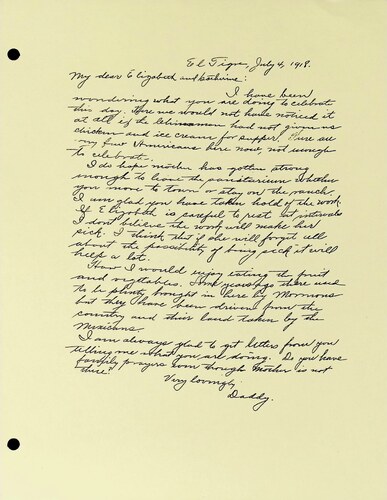 El Tigre, July 4, 1918.
My dear Elizabeth and Catherine:
I have been
wondering what you are doing to celebrate
this day. Here we would not have noticed it
at all if the Chinaman had not given us
chicken and ice cream for supper. There are
very few Americans here now, not enough
to celebrate.
I do hope mother has gotten strong
enough to leave the sanitarium whether
you move to town or stay on the ranch.
I am glad you have taken hold of the work.
If Elizabeth is careful to rest at intervals
I don't believe the work will make her
sick. I think that if she will forget all
about the possibility of being sick it will
help a lot.
How I would enjoy eating the fruit
and vegetables. Some years ago there used
to be plenty brought in here by Mormons
but they have been driven from the
country and their land taken by the
Mexicans.
I am always glad to get letters from you
telling me what you are doing. Do you have
family prayers even though Mother is not
there?
Very lovingly,
Daddy.